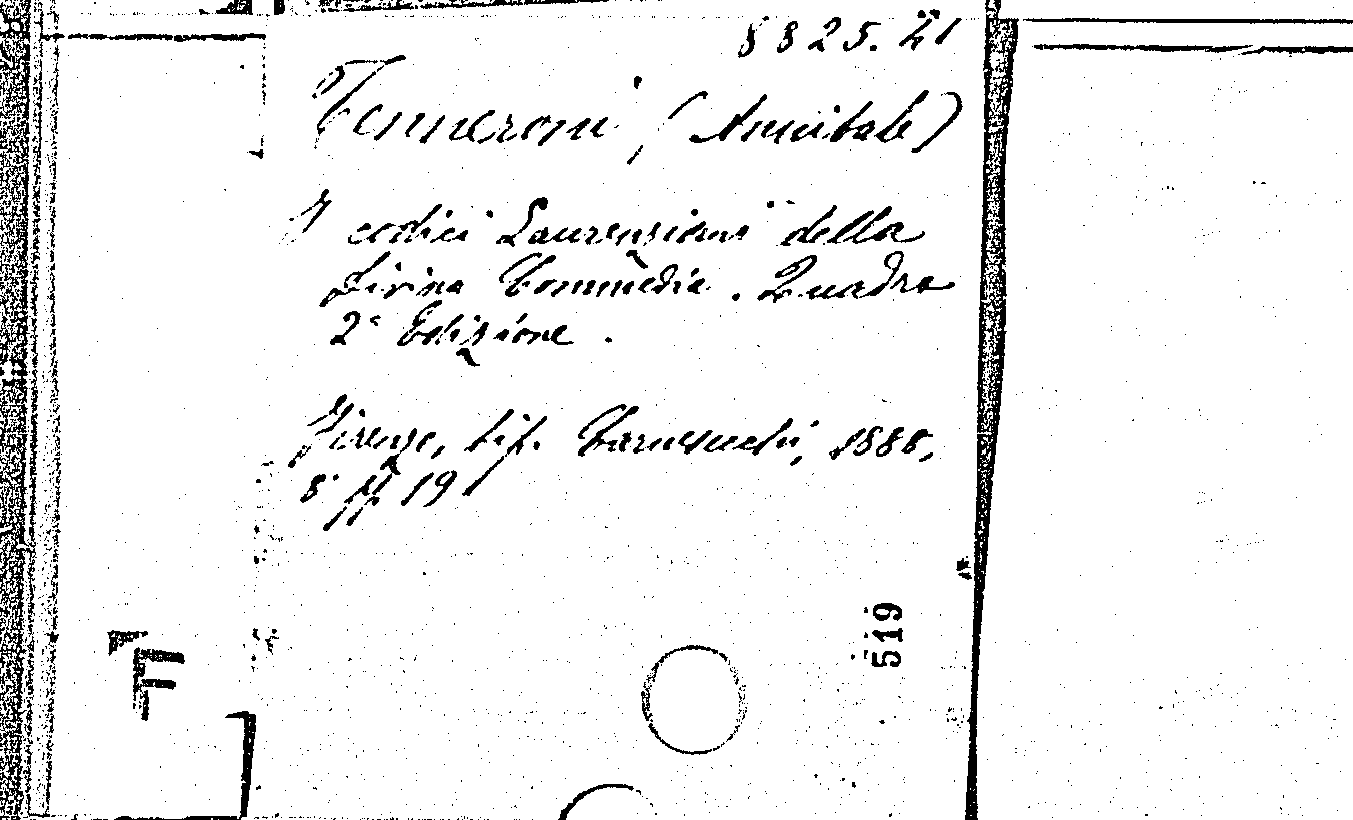 8825.21
Tenneroni, (Annibale)
I codici Laurenziani della
Divina Commedia. Quadro
2ª Edizione.
Firenze, tip. Carnesecchi, 1888,
8° pp 19
519
F